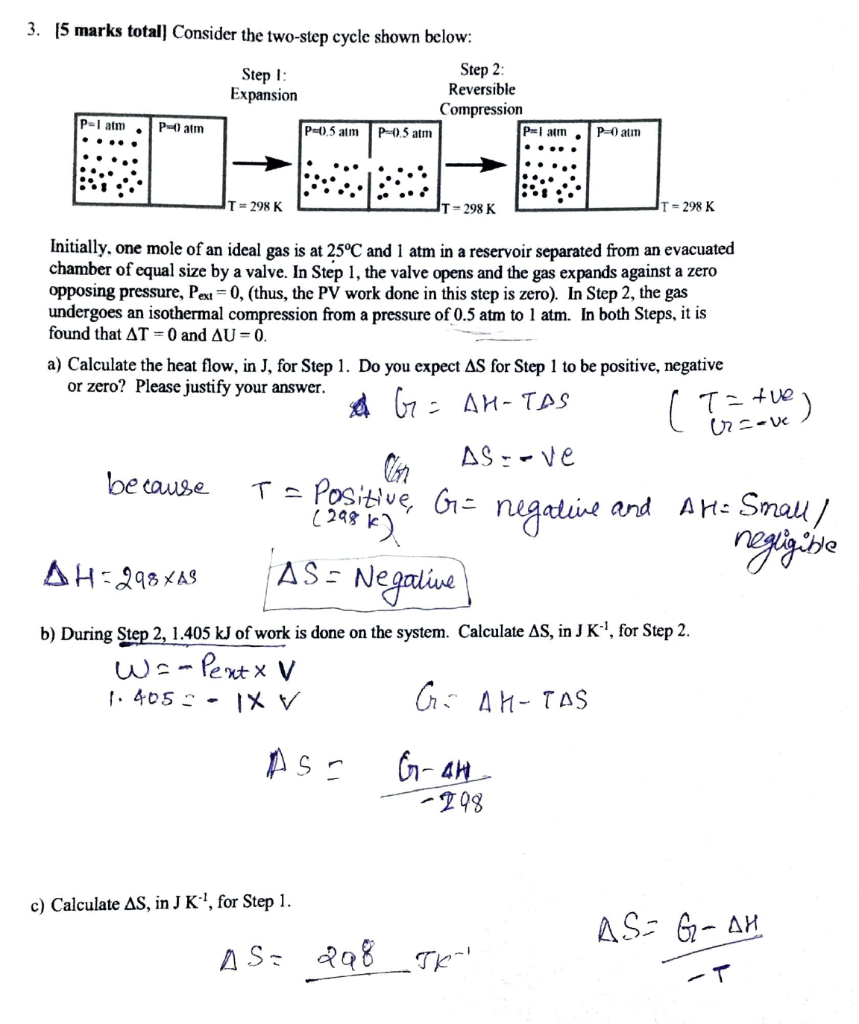 3. [5 marks total] Consider the two-step cycle shown below:
Step 1:
Expansion
Step 2:
Reversible
Compression
P=1 atm
P=0 atm
P=0.5 atm
P=0.5 atm
P=1 atm
P=0 atm
T = 298 K
T = 298 K
T = 298 K
Initially, one mole of an ideal gas is at 25ºC and 1 atm in a reservoir separated from an evacuated
chamber of equal size by a valve. In Step 1, the valve opens and the gas expands against a zero
opposing pressure, Pext = 0, (thus, the PV work done in this step is zero). In Step 2, the gas
undergoes an isothermal compression from a pressure of 0.5 atm to 1 atm. In both Steps, it is
found that ΔT = 0 and ΔU = 0.
a) Calculate the heat flow, in J, for Step 1. Do you expect ΔS for Step 1 to be positive, negative
or zero? Please justify your answer.
G = ΔH - TΔS
( T = +ve
G = -ve )
ΔS = -ve
because T = Positive, G = negative and ΔH = Small /
(298 K)
negligible
ΔH = 298 × ΔS
ΔS = Negative
b) During Step 2, 1.405 kJ of work is done on the system. Calculate ΔS, in J K⁻¹, for Step 2.
W = - Pext × V
1.405 = - 1 × V
G = ΔH - TΔS
ΔS = G - ΔH
-298
c) Calculate ΔS, in J K⁻¹, for Step 1.
ΔS = G - ΔH
-T
ΔS = 298 JK⁻¹